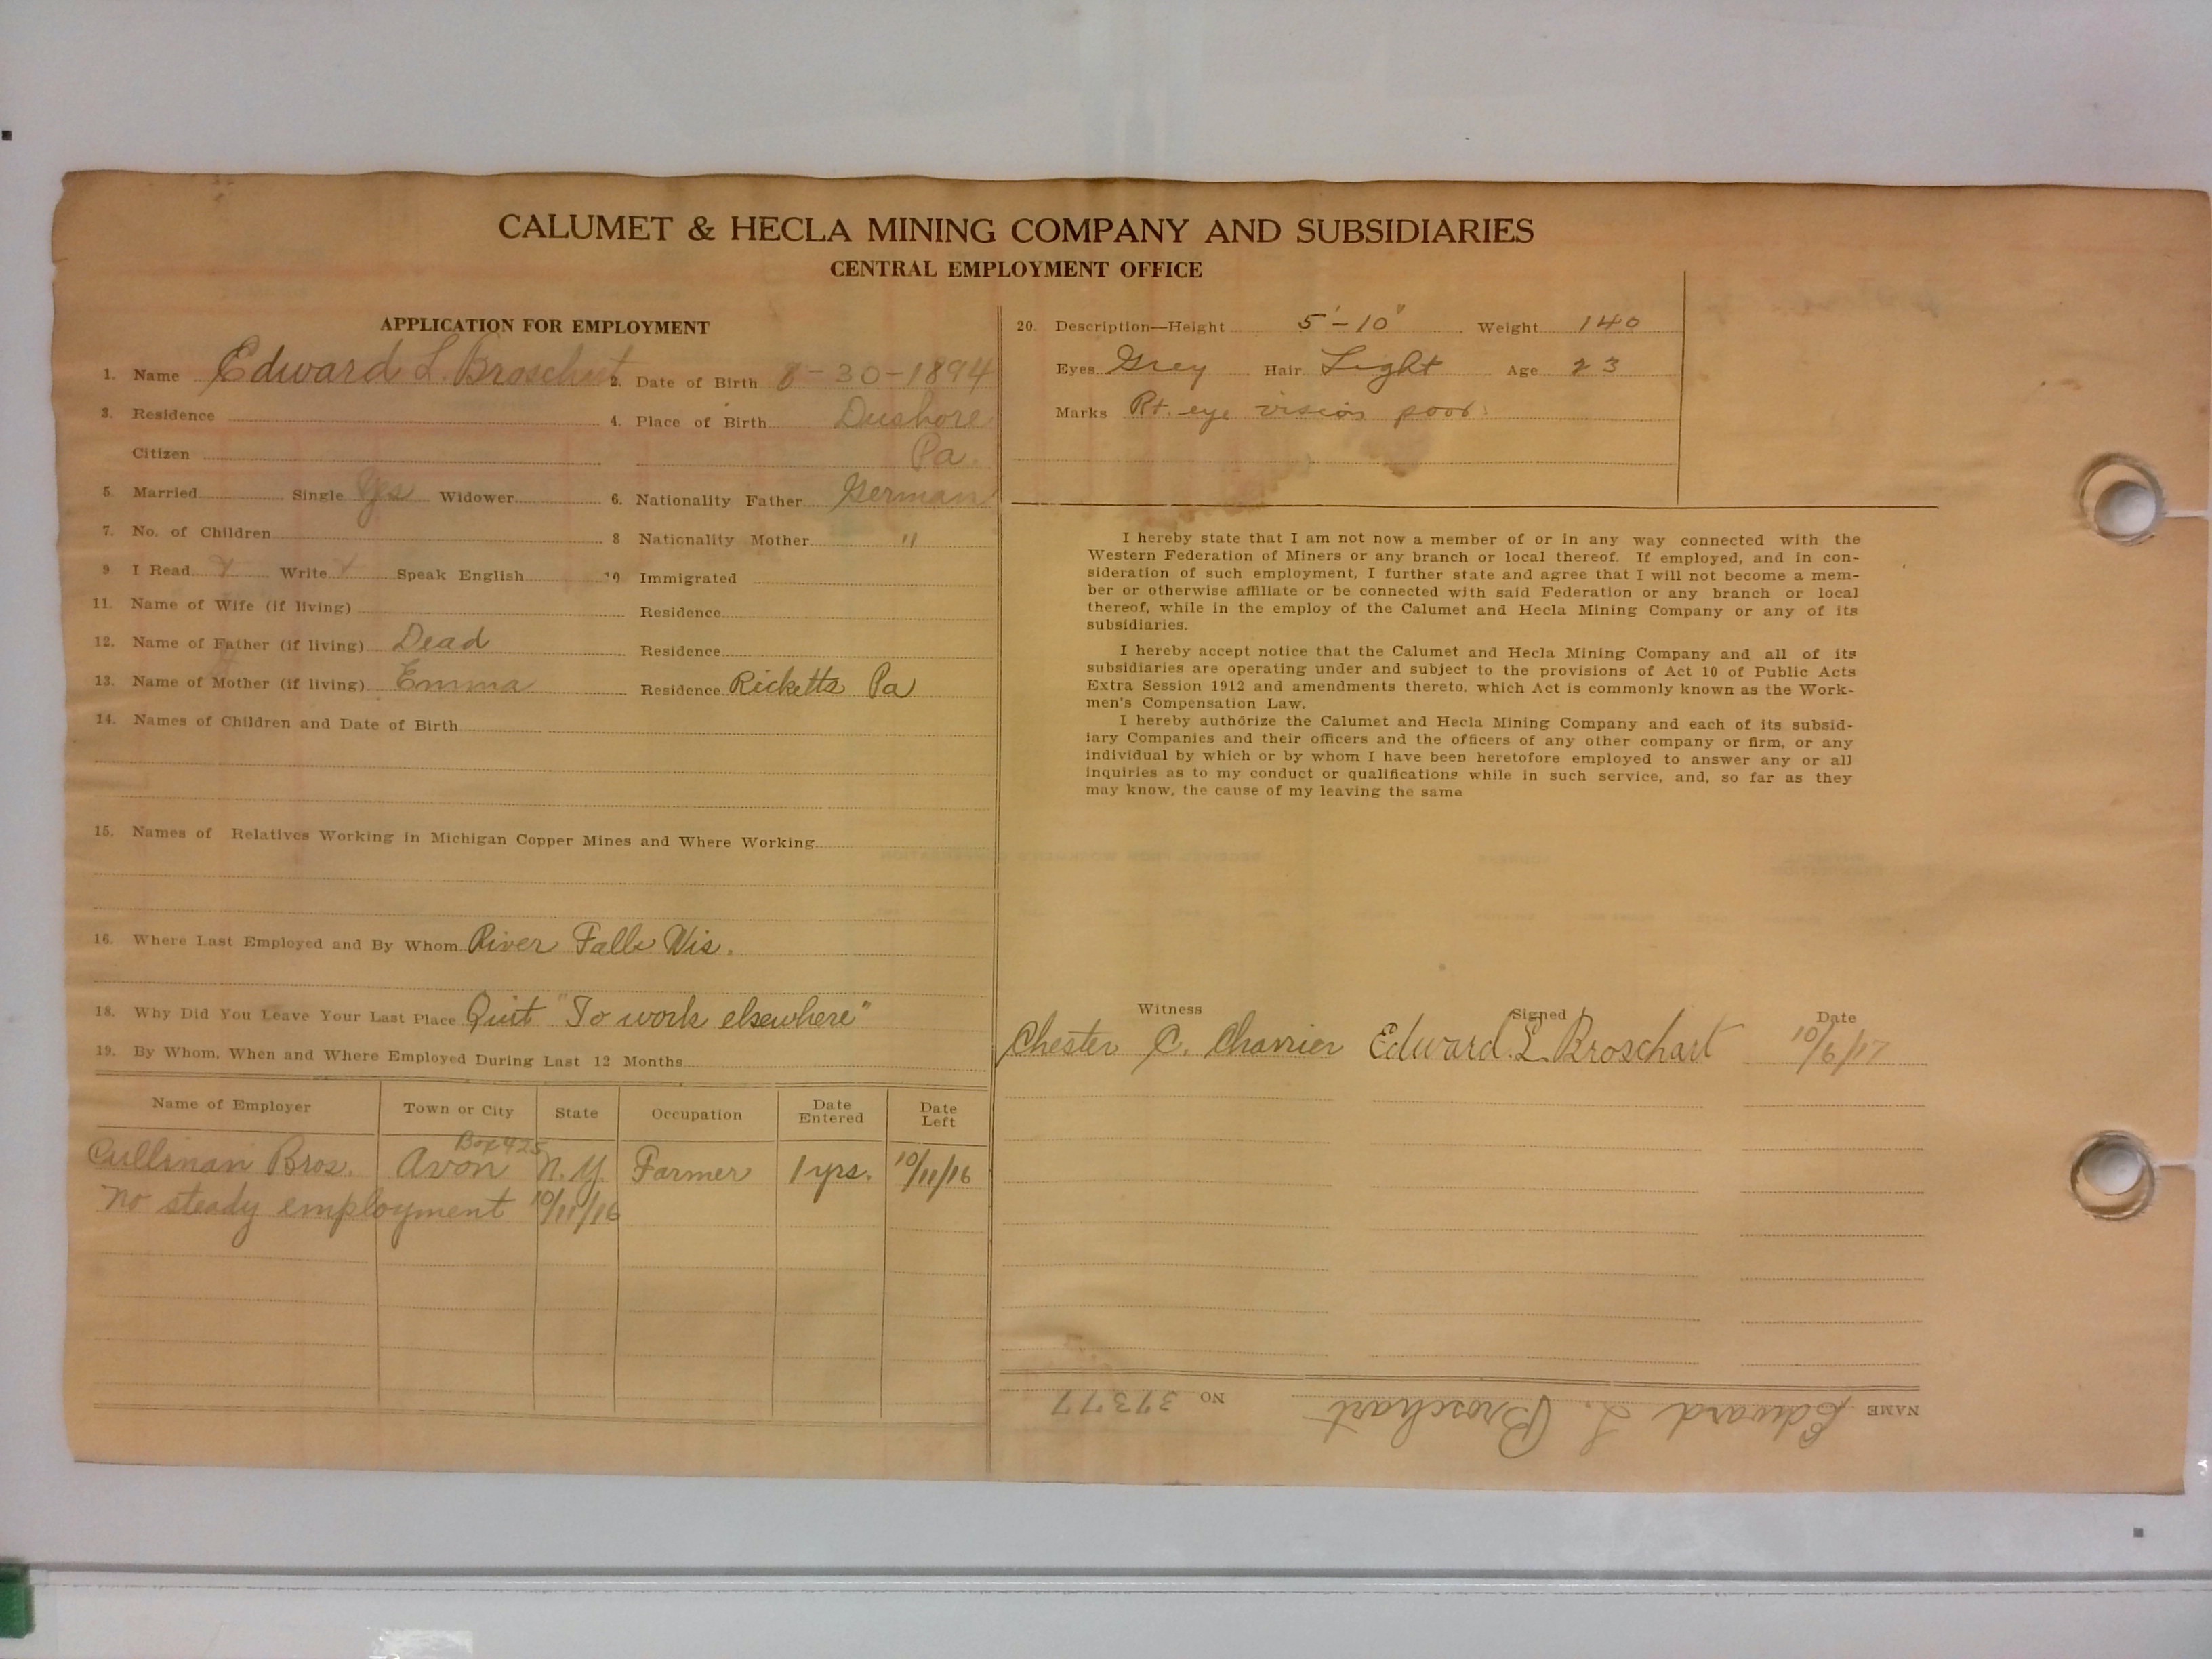 CALUMET & HECLA MINING COMPANY AND SUBSIDIARIES
CENTRAL EMPLOYMENT OFFICE
APPLICATION FOR EMPLOYMENT
1. Name Edward L. Broschart 2. Date of Birth 8-30-1894
3. Residence 4. Place of Birth Dushore
Citizen Pa.
5. Married Single Yes Widower 6. Nationality Father German
7. No. of Children 8 Nationality Mother "
9 I Read x Write x Speak English 10 Immigrated
11. Name of Wife (if living) Residence
12. Name of Father (if living) Dead Residence
13. Name of Mother (if living) Emma Residence Ricketts Pa
14. Names of Children and Date of Birth
15. Names of Relatives Working in Michigan Copper Mines and Where Working
16. Where Last Employed and By Whom River Falls Wis.
18. Why Did You Leave Your Last Place Quit "To work elsewhere"
19. By Whom, When and Where Employed During Last 12 Months
Name of Employer Town or City State Occupation Date Entered Date Left
Box 425
Cullinan Bros. Avon N.Y. Farmer 1 yrs. 10/11/16
No steady employment 10/11/16
20. Description—Height 5'-10" Weight 140
Eyes Grey Hair Light Age 23
Marks Rt. eye vision poor
I hereby state that I am not now a member of or in any way connected with the
Western Federation of Miners or any branch or local thereof. If employed, and in con-
sideration of such employment, I further state and agree that I will not become a mem-
ber or otherwise affiliate or be connected with said Federation or any branch or local
thereof, while in the employ of the Calumet and Hecla Mining Company or any of its
subsidiaries.
I hereby accept notice that the Calumet and Hecla Mining Company and all of its
subsidiaries are operating under and subject to the provisions of Act 10 of Public Acts
Extra Session 1912 and amendments thereto, which Act is commonly known as the Work-
men's Compensation Law.
I hereby authorize the Calumet and Hecla Mining Company and each of its subsid-
iary Companies and their officers and the officers of any other company or firm, or any
individual by which or by whom I have been heretofore employed to answer any or all
inquiries as to my conduct or qualifications while in such service, and, so far as they
may know, the cause of my leaving the same
Witness Signed Date
Chester C. Edward L. Broschart 10/6/17
NAME Edward L. Broschart NO 37377